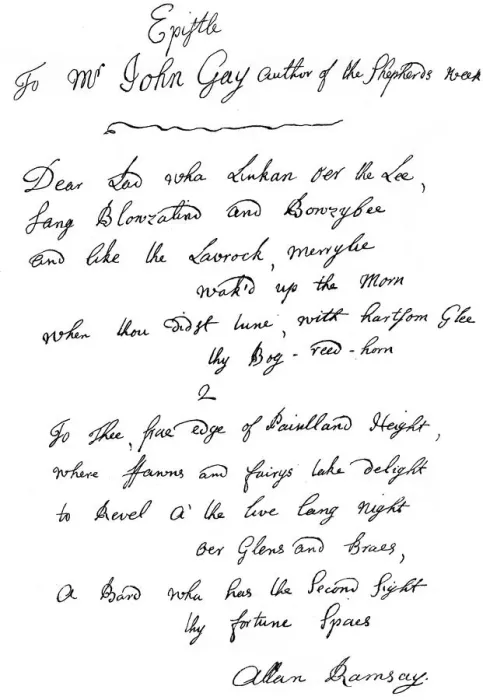 Epistle
To Mr John Gay Author of the Shepherds week
Dear Lad wha Linkan o'er the Lee,
Sang Blowzalind and Bowzybee
and like the Lavrock, merrylie
wak'd up the Morn
when thou didst tune, with hartsom Glee
thy Bog-reed-horn
2
To Thee, frae edge of Pentland Height,
where ffawns and fairys take delight
to Revel a' the live lang Night
o'er Glens and Braes,
a Bard wha has the Second Sight
thy fortune Spaes
Allan Ramsay.